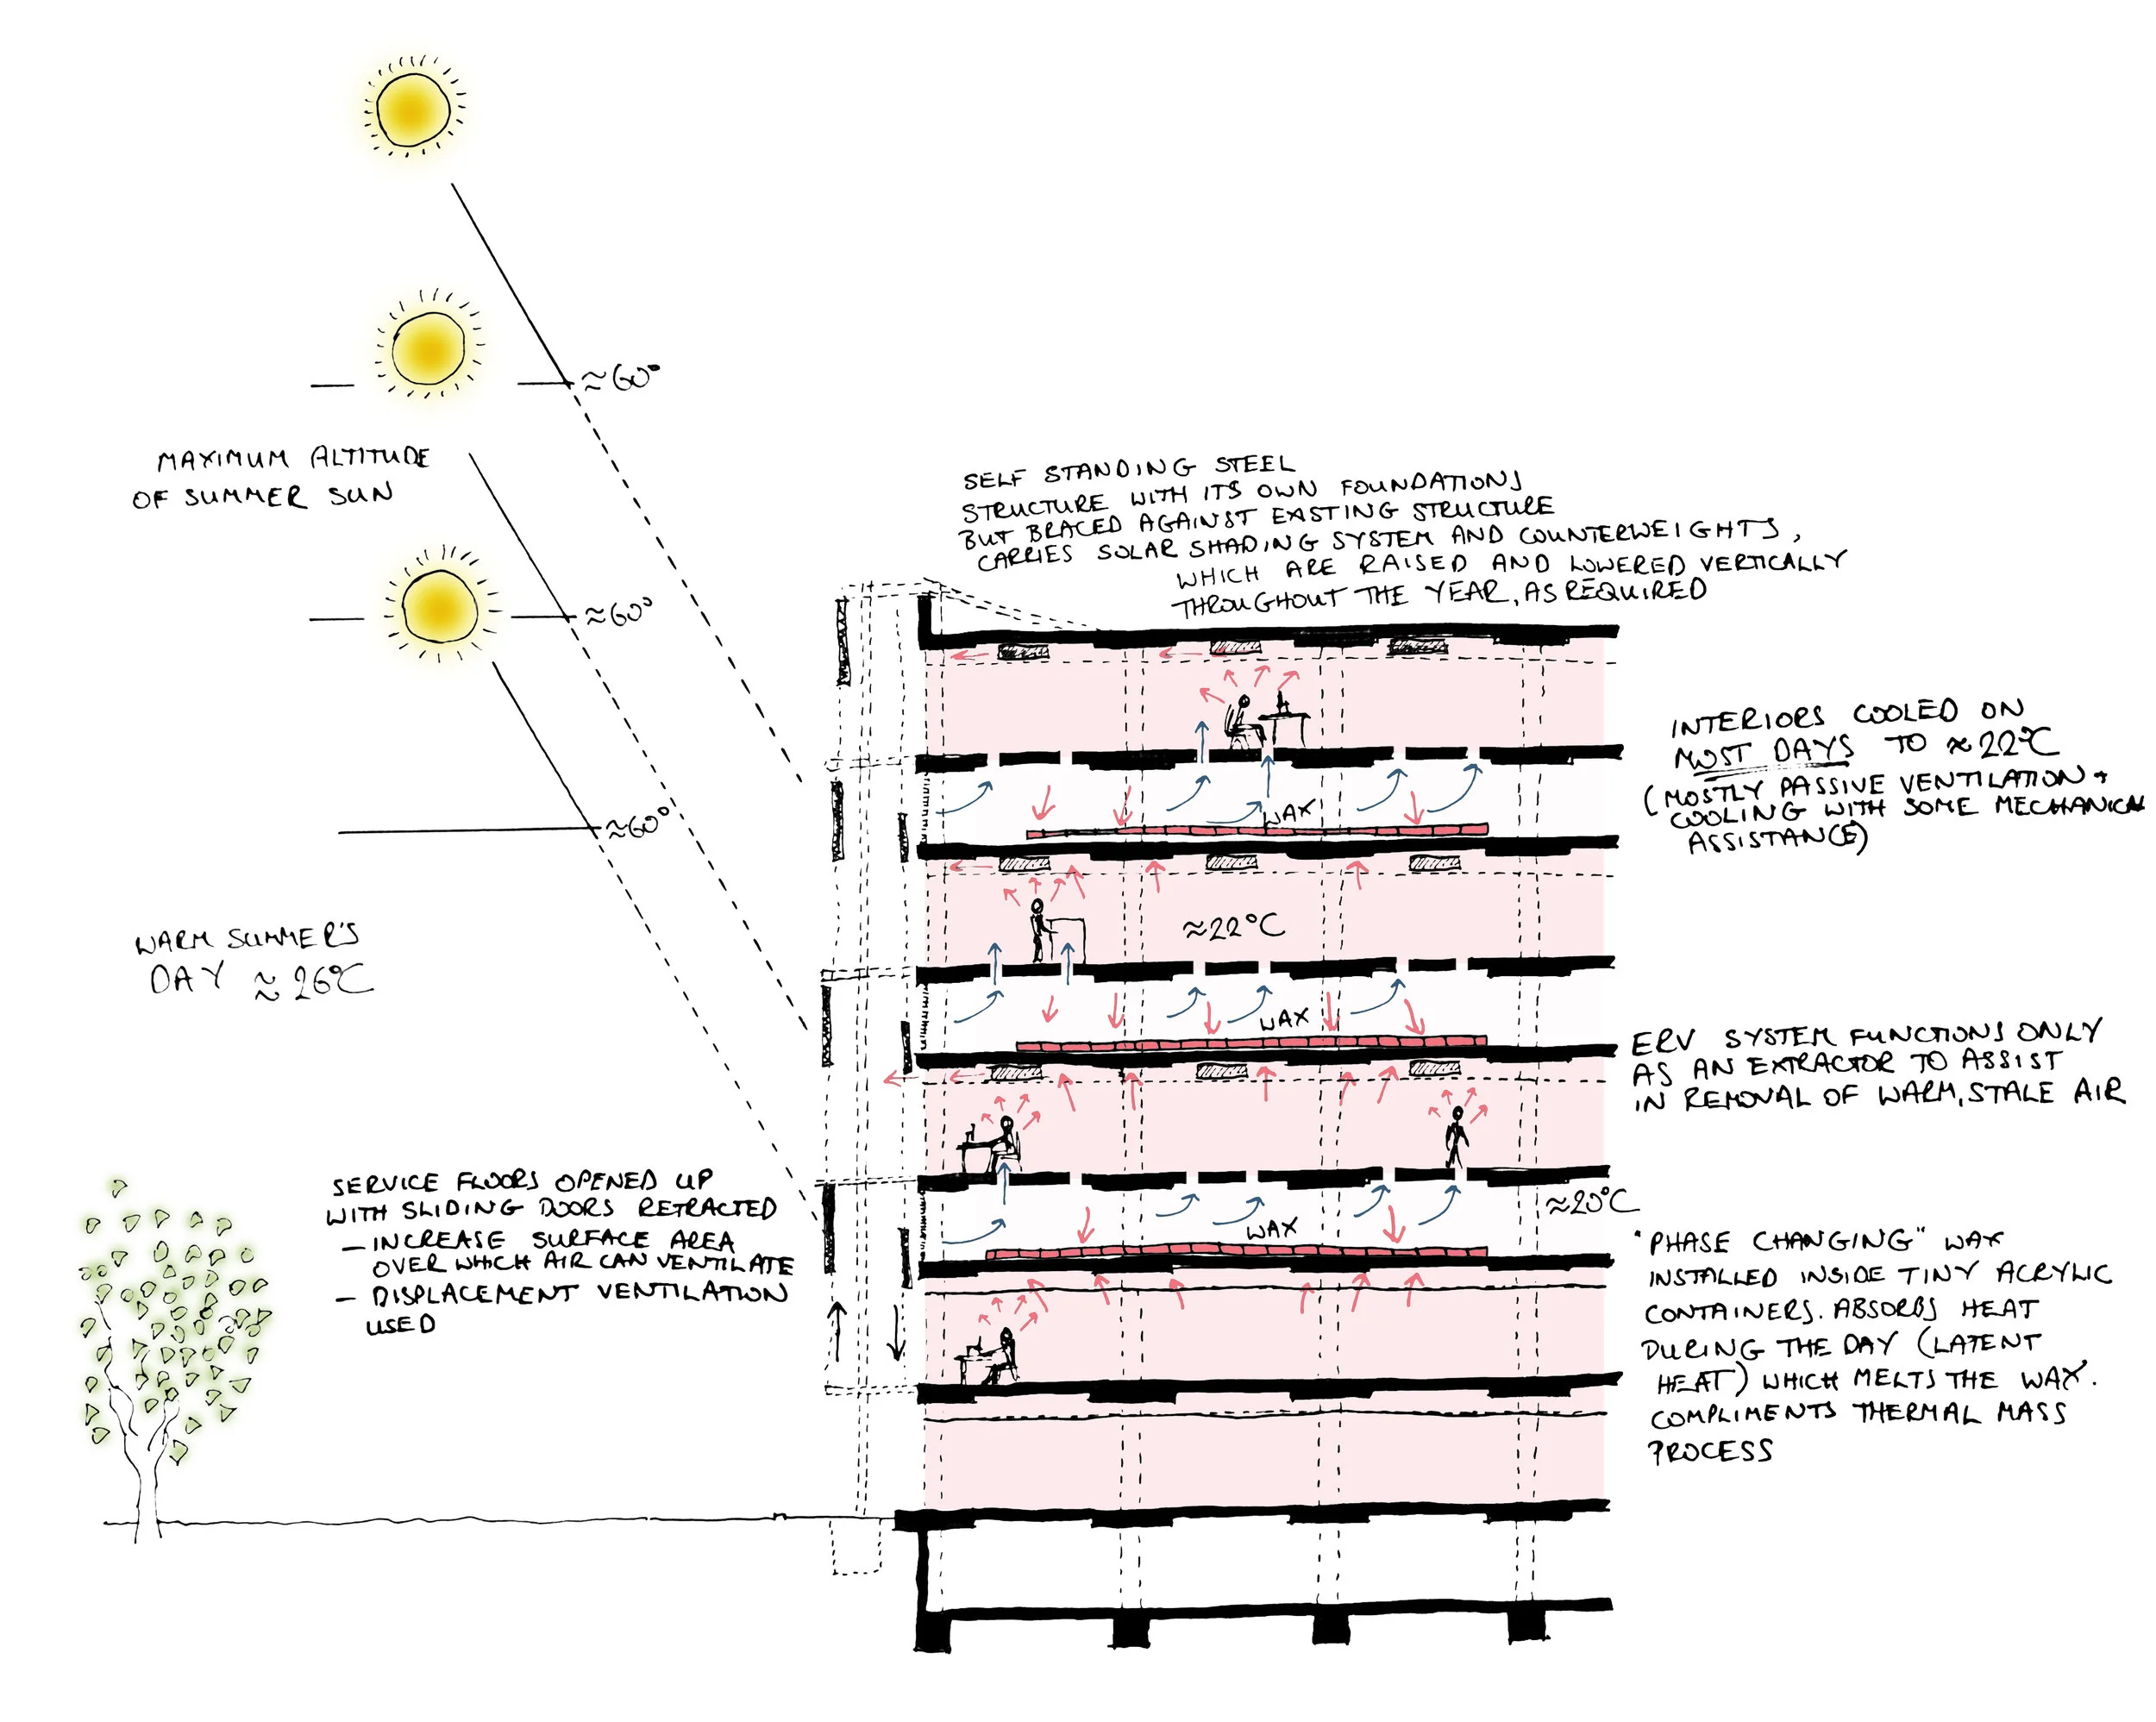 ≈60°
MAXIMUM ALTITUDE
OF SUMMER SUN
≈60°
≈60°
WARM SUMMER'S
DAY ≈26°C
SELF STANDING STEEL
STRUCTURE WITH ITS OWN FOUNDATIONS
BUT BRACED AGAINST EXISTING STRUCTURE
CARRIES SOLAR SHADING SYSTEM AND COUNTERWEIGHTS,
WHICH ARE RAISED AND LOWERED VERTICALLY
THROUGHOUT THE YEAR, AS REQUIRED
WAX
≈22°C
WAX
WAX
≈20°C
INTERIORS COOLED ON
MOST DAYS TO ≈22°C
(MOSTLY PASSIVE VENTILATION +
COOLING WITH SOME MECHANICAL
ASSISTANCE)
ERV SYSTEM FUNCTIONS ONLY
AS AN EXTRACTOR TO ASSIST
IN REMOVAL OF WARM, STALE AIR
SERVICE FLOORS OPENED UP
WITH SLIDING DOORS RETRACTED
— INCREASE SURFACE AREA
OVER WHICH AIR CAN VENTILATE
— DISPLACEMENT VENTILATION
USED
"PHASE CHANGING" WAX
INSTALLED INSIDE TINY ACRYLIC
CONTAINERS. ABSORBS HEAT
DURING THE DAY (LATENT
HEAT) WHICH MELTS THE WAX.
COMPLIMENTS THERMAL MASS
PROCESS